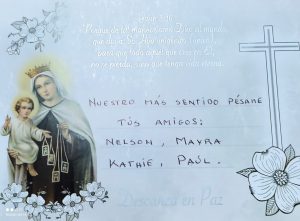 Juan 3:16
Porque de tal manera amó Dios al mundo,
que dio a Su Hijo unigénito
para que todo aquel que cree en Él,
no se pierda, sino que tenga vida eterna.
NUESTRO MÁS SENTIDO PÉSAME
TÚS AMIGOS:
NELSON, MAYRA
KATHIE, PAÚL.
Descansa en Paz